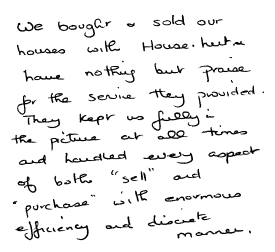 We bought & sold our
houses with House.hut
have nothing but praise
for the service they provided.
They kept us fully in
the picture at all times
and handled every aspect
of both "sell" and
"purchase" with enormous
efficiency and discrete
manner.